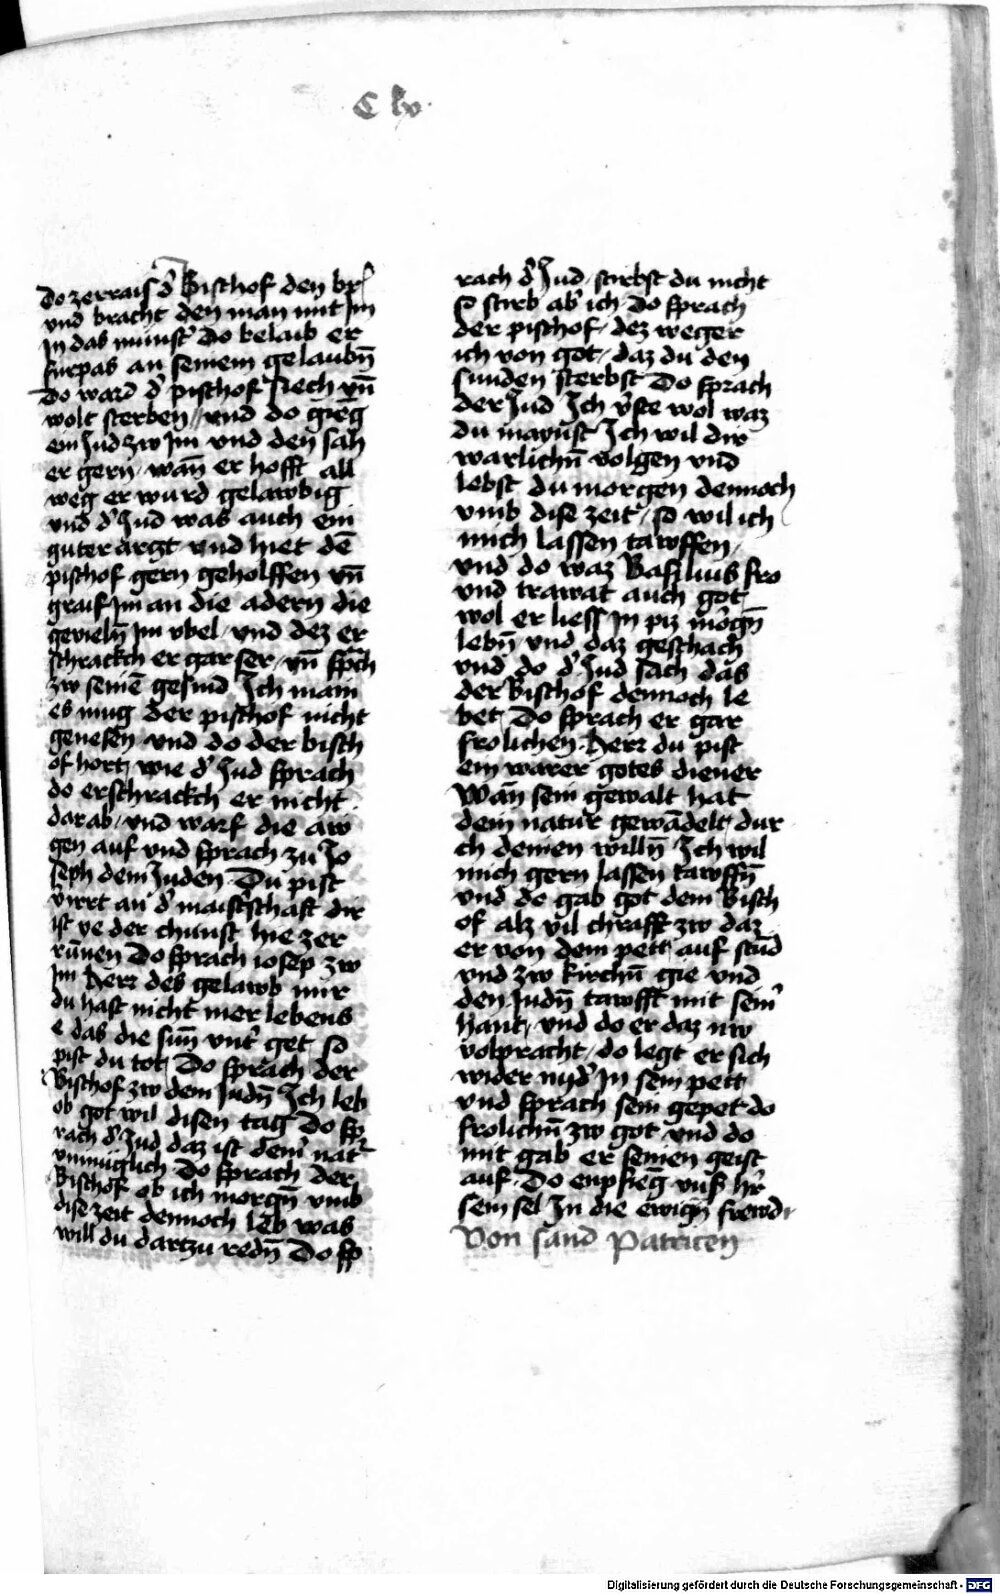 C lv
Do zerrais d' Bischof den br
vnd bracht den man mit Im
In das munst' Do belaib er
furpas an seinem gelaubn̄
Do ward d' pischof siech vn̄
wolt sterben / vnd do gieg
ein Jud zw Im vnd den sah
er gern / wan̄ er hofft all
weg er wurd gelawbig
vnd d' Jud was auch ein
guter arzt vnd hiet dē
pischof gern geholffen vn̄
graif Im an die adern die
geuieln̄ Im vbel / vnd dez er
schrackch er gar ser / vn̄ sp̄ch
zw seinē gesind Ich main
es mug der pischof nicht
genesen vnd do der bisch
of hort wie d' Jud sprach
do erschrackch er nicht
darab / vnd warf die aw
gen auf vnd sprach zu Jo
seph dem Juden Du pist
virrt an d' maistschaft dir
ist ye der chunst hie zer
rūnen Do sprach iosep zw
Im Herr des gelawb mir
du hast nicht mer lebens
e das die sun̄ vnt' get so
pist du tot Do sprach der
Bischof zw dem Judn̄ Ich leb
ob got wil disen tag Do sp
rach d' Jud daz ist dein' nat'
vnmuglich Do sprach der
Bischof ob ich morgn̄ vmb
dise zeit dennoch leb was
will du dartzu redn̄ Do sp
rach d' Jud / stirbst du nicht
so stirb ab' ich Do sprach
der pischof / dez weger
ich von got / daz du den
sunden sterbst Do sprach
der Jud Ich v'ste wol waz
du mainst Ich wil dir
warlichn̄ volgen vnd
lebst du morgen dennoch
vmb dise zeit / so wil ich
mich lassen tawffen /
vnd do waz Basilius fro
vnd trawat auch got
wol er liess In piz morgn̄
lebn̄ vnd daz geschach
vnd do d' Jud sach das
der Bischof dennoch le
bet Do sprach er gar
frolichen Herr du pist
ein warer gotes diener
Wan̄ sein gewalt hat
dein natur gewādelt dur
ch deinen willn̄ Ich wil
mich gern lassen tawffn̄
vnd do gab got dem Bisch
of alz vil chrafft zw daz
er von dem pett auf stūd
vnd zw kirchn̄ gie vnd
den Judn̄ tawfft mit sein'
hant / vnd do er daz nw
volpracht / do legt er sich
wider nyd' In sein pett
vnd sprach sein gepet do
frolichn̄ zw got vnd do
mit gab er seinen geist
auf Do enpfieg vns' h'r
sein sel In die ewign̄ frewdn
Von sand Patricen